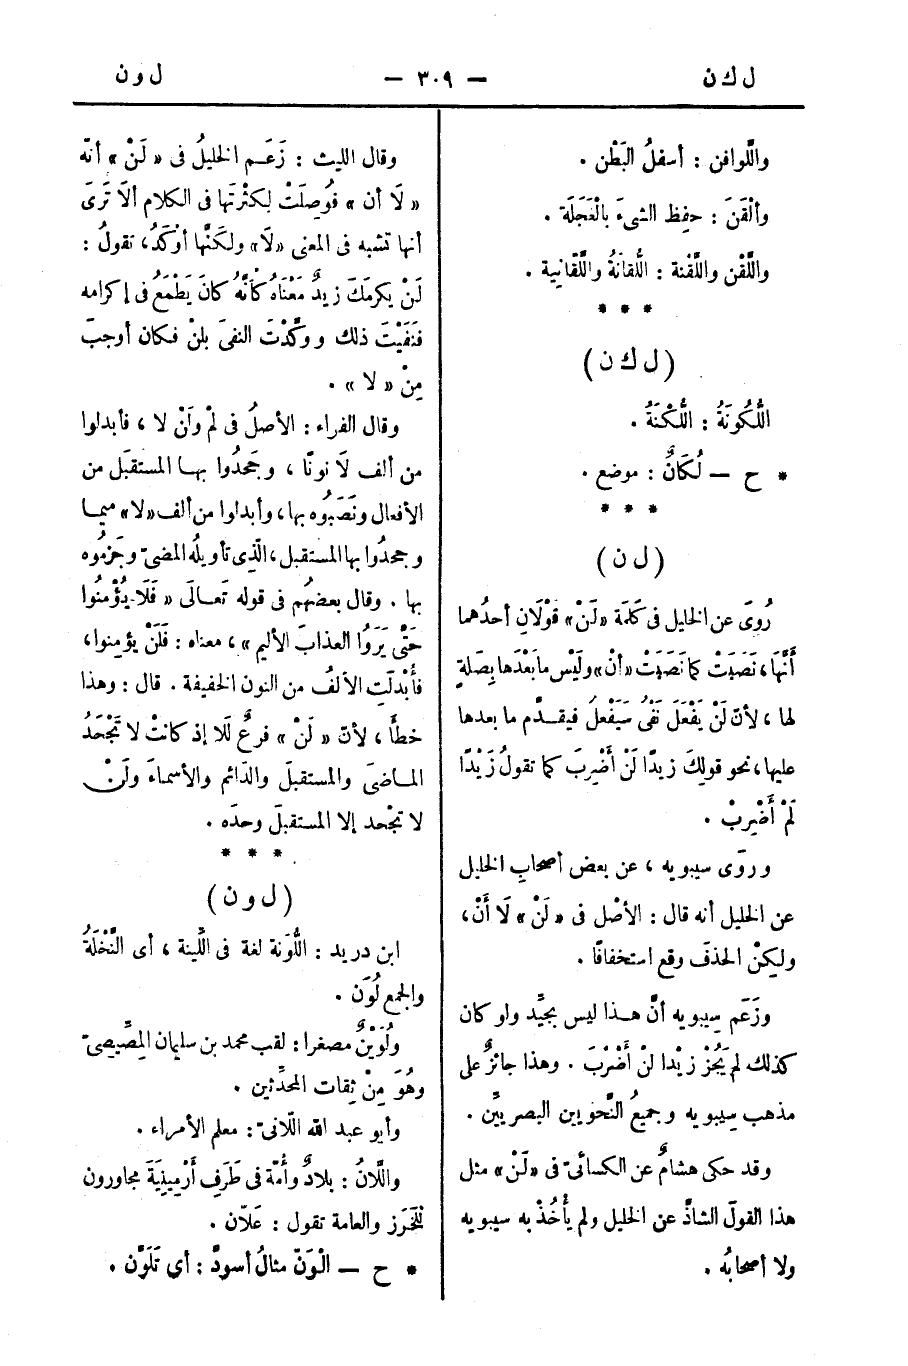 ل ك ن — ٣٠٩ — ل و ن
واللَّوافن : أسفلُ البَطْن .
وألْقَنَ : حفِظ الشيءَ بالْعَجَلَة .
واللَّقْن واللَّقْنة : اللَّقانَةُ واللَّقانِية .
* * *
(ل ك ن)
اللُّكُونَةُ : اللُّكْنَةُ .
* ح — لُكَانٌ : موضع .
* * *
(ل ن)
رُوِىَ عن الخليل فى كَلمَة «لَنْ» قَوْلَانِ أحدُهما
أَنَّها، نَصَبَتْ كما نَصَبَتْ «أنْ» ولَيْس ما بَعْدَها بِصَلَةٍ
لها ، لأنّ لَنْ يَفْعَلَ نَفْىُ سَيَفْعلُ فيقدَّم ما بعدها
عليها، نحو قولِكَ زيدًا لَنْ أَضْرِبَ كما تقولُ زَيْدًا
لَمْ أَضْرِبْ .
وروَى سيبويه ، عن بعض أصحابِ الخليل
عن الخليل أنه قال : الأصْل فى «لَنْ» لَا أَنْ،
ولكِنْ الحذفَ وقع استخفافًا .
وزَعَم سِيبويه أنَّ هذا ليس بجيِّد ولو كان
كذلك لم يَجُزْ زيْدا لنْ أَضْرْبَ . وهذا جائزٌ على
مذهب سِيبويه وجميعُ النَّحويين البصريِّين .
وقد حكى هشامٌ عن الكسائىّ فى «لَنْ» مثل
هذا القولَ الشاذَّ عن الخليل ولم يأْخُذْ به سيبويه
ولا أصحابُه .
وقال الليث : زَعَم الخليلُ فى « لَنْ » أنّه
« لَا أن » فوُصِلَتْ لِكثْرتَها فى الكلام ألَا تَرَىَ
أنها تشبه فى المعنى «لَا» ولكَنَّها أوْكَدُ، تقولُ :
لَنْ يكرمَكَ زيدٌ مَعْنَاهُ كأنَّهُ كانَ يَطْمَعُ فى إكرامه
فنَفَيْتَ ذلك ووكَّدْتَ النفىَ بلنْ فكان أوجبَ
مِنْ « لا » .
وقال الفراء : الأصلُ فى لمْ ولَنْ لا ، فأبدلوا
من ألف لَا نونًا ، وجَحَدُوا بها المستقبَل من
الأفعال ونَصَبُوه بها، وأبدلوا من ألف «لا» ميما
وجحدُوا بها المستقبل، الَّذِى تأويلُه المضىّ وجَزَمُوه
بها . وقال بعضهُم فى قوله تَعالَى « فَلَا يُؤْمِنُوا
حَتَّى يَرَوُا العذابَ الأليم »، معناه : فَلَنْ يؤمِنوا،
فأبْدلَتِ الألفُ من النون الخفيفة . قال : وهذا
خطأ ، لأنّ « لَنْ » فرعٌ لِلَا إذ كانتْ لا تَجْحَدُ
الماضىَ والمستقبلَ والدّائم والأسماءَ ولَنْ
لا تجْحد إلا المستقبلَ وحدَه .
* * *
(ل و ن)
ابن دريد : اللُّونَة لغة فى اللِّينة ، أى النَّخْلَةُ
والجمع لُوَن .
ولُوَيْنٌ مصغرا : لقب محمد بن سليمان المِصِّيصىّ
وهُوَ مِنْ ثِقات المحدِّثين .
وأبو عبد الله اللَّانىّ : معلم الأمراء .
واللَّانُ : بلادٌ وأُمّةٌ فى طَرَفِ أَرْمِينِيَةَ مجاورون
لْلخَرَز والعامة تقول : عَلَّان .
* ح — الْوَنّ مثالُ أسودَّ : أي تَلَوَّن .